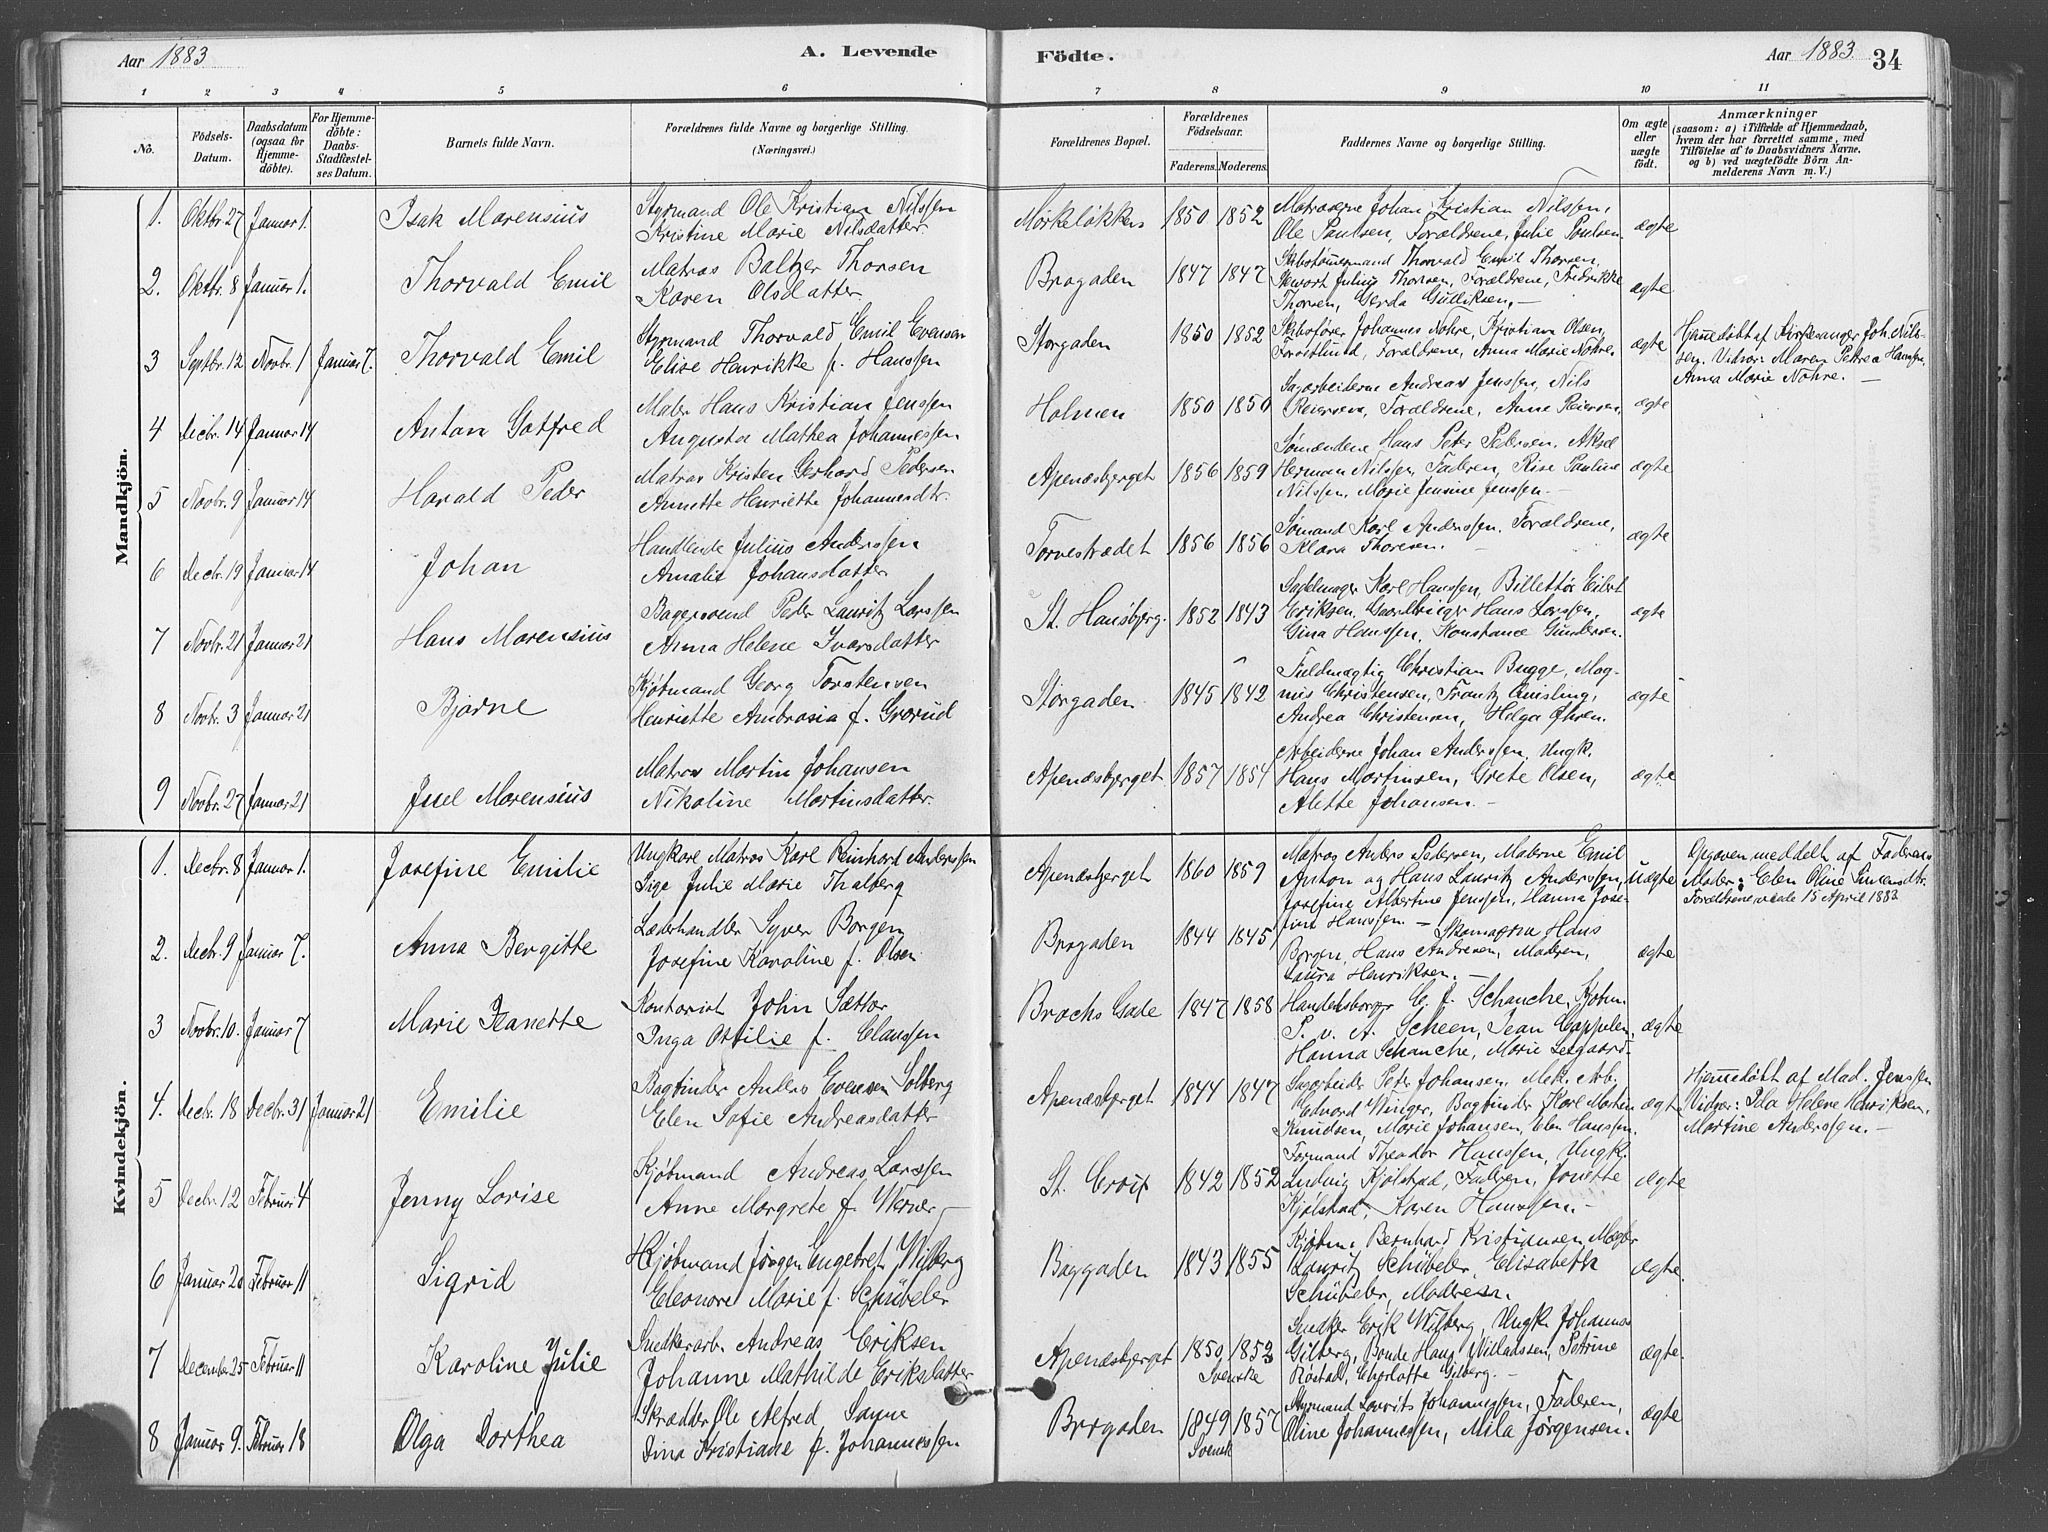 Aar 1883 A. Levende Födte. Aar 1883. 34
1 2 3 4 5 6 7 8 9 10 11
No.
Födsels-Datum.
Daabsdatum (ogsaa for Hjemme-döbte).
For Hjemme-döbte: Daabs-Stadfæstel-ses Datum.
Barnets fulde Navn.
Forældrenes fulde Navne og borgerlige Stilling. (Næringsvei.)
Forældrenes Bopæl.
Forældrenes Födselsaar.
Faderens. Moderens.
Faddernes Navne og borgerlige Stilling.
Om ægte eller uægte födt.
Anmærkninger
(saasom: a) i Tilfælde af Hjemmedaab,
hvem der har forrettet samme, med
Tilföielse af to Daabsvidners Navne.
og b) ved uægtefödte Börn An-
melderens Navn m. V.)
Mandkjön.
1. Oktbr. 27 Januar 1. Isak Marensius
Styrmand Ole Kristian Nilssen
Kristine Marie Nilsdatter
Mørkeløkken 1850 1852
Matroserne Johan Kristian Nilssen,
Ole Paulsen, Forældrene, Julie Poulsen. ægte
2. Oktbr. 8 Januar 1. Thorvald Emil
Matros Baltzer Thorsen
Karen Olsdatter
Brogaden 1847 1847
Skibstømmermand Thorvald Emil Thorsen,
Julius Thorsen, Forældrene, Fredrikke
Thorsen, Gerda Gulliksen. ægte
3 Septbr. 12 Novbr. 1 Januar 7. Thorvald Emil
Styrmand Thorvald Emil Evensen
Elise Henrikke f. Hanssen
Storgaden 1850 1852
Skibsfører Johannes Nohre, Kristian Olsen,
Forældrene, Anna Marie Nohre. ægte
Hjemedøbt af Kirkesanger Joh. Nils-
sen. Vidner: Maren Petrea Hanssen,
Anna Marie Nohre. –
4 Decbr. 14 Januar 14 Anton Gotfred
Maler Hans Kristian Jenssen
Augusta Mathea Johannessen
Holmen 1850 1850
Sagarbeiderne Andreas Jenssen, Nils
Reiersen, Forældrene, Anne Reiersen. ægte
5 Novbr. 9 Januar 14 Harald Peder
Matros Kristen Gerhard Pedersen
Annette Henriette Johannesdtr.
Apenæsbjerget 1856 1859
Sømændene Hans Peter Pedersen, Aksel
Herman Nilssen, Faderen, Pauline
Nilssen, Marie Jensine Jenssen. – ægte
6 Decbr. 19 Januar 14 Johan
Handlende Julius Anderssen
Amalie Johansdatter
Torvestrædet 1856 1856
Sømand Karl Anderssen, Forældrene,
Klara Thoresen. ægte
7 Novbr. 21 Januar 21 Hans Marensius
Bagersvend Peder Lauritz Larssen
Anna Helene Ivarsdatter
St. Hansbjerg. 1852 1843
Sadelmager Karl Hanssen, Billettør Eilert
Eriksen, Gaardbruger Hans Larssen,
Gina Hanssen, Konstance Gundersen. ægte
8 Novbr. 3 Januar 21 Bjarne
Kjøbmand Georg Torstensen
Henriette Ambrosia f. Grorud
Storgaden 1845 1842
Fuldmægtig Christian Bugge, Mag-
nus Christensen, Frantz Quisling,
Andrea Christensen, Helga Øhren. ægte
9 Novbr. 27 Januar 21 Juel Marensius
Matros Martin Johansen
Nikoline Martinsdatter
Apenæsbjerget 1857 1854
Arbeiderne Johan Anderssen, Ungk.
Hans Martinsen, Grete Olsen,
Alette Johansen. – ægte
Kvindekjön.
1. Decbr. 8 Januar 1. Josefine Emilie
Ungkarl Matros Karl Reinhart Anderssen
Pige Julie Marie Thalberg
Apenæsbjerget 1860 1859
Matros Anders Pedersen, Malerne Emil
Anton og Hans Lauritz Anderssen,
Josefine Albertine Jenssen, Hanna Jose-
fine Hanssen. – uægte
Opgaven meddelt af Faderens
Moder: Elen Oline
Forældrene viede 15 April 1883
2. Decbr. 9 Januar 7. Anna Bergitte
Læderhandler Syver Borgen
Josefine Karoline f. Olsen
Brogaden 1844 1845
Skomagerne Hans
Borgen, Hans Andresen, Moderen,
Laura Henriksen. – ægte
3 Novbr. 10. Januar 7 Marie Jeanette
Kontorist John Sætter
Inga Ottilie f. Claussen
Brochs Gade 1847 1858
Handelsborger C. J. Schanche, Kjøbm.
P. v. A. Scheen, Jean Cappelen,
Hanna Schanche, Marie ægte
4. Decbr. 18 Decbr. 31 Januar 21 Emilie
Bogbinder Anders Evensen Solberg
Elen Sofie Andreasdatter
Apenæsbjerget 1844 1847
Sagarbeider Peder Johansen, Mek. Arb.
Edvard Winger, Bogbinder Karl Martin
Knudsen, Marie Johansen, Elen Hanssen. ægte
Hjemedøbt af Mad. Jenssen
Vidner: Ida Helene Henriksen,
Martine Anderssen. –
5 Decbr. 12 Februar 4 Jenny Lovise
Kjøbmand Andreas Larssen
Anne Margrete f. Werner
St. Croix 1842 1852
Formand Theodor Hanssen, Ungk.
Ludvig Kjølstad, Faderen, Jonette
Kjølstad, Karen Hanssen. – ægte
6 Januar 20 Februar 11 Sigrid
Kjøbmand Jørgen Engebret Wilberg
Eleonore Marie f. Schübeler
Baggaden 1843 1855
Kjøbm. Bernhard Kristiansen, Mægler
Lauritz Schübeler, Elisabeth
Schübeler, Moderen. ægte.
7 December 25 Februar 11 Karoline Julie
Snedkerarb. Andreas Eriksen
Johanne Mathilde Eriksdatter
Apenæsbjerget 1850 1852
Svenske
Snedker Erik Wilberg, Ungk. Johannes
Gilberg, Bonde Hans Willadssen, Petrine
Røstad, Charlotte Gilberg. – ægte.
8 Januar 9. Februar 18 Olga Dorthea
Skrædder Ole Alfred Sanne
Dina Kristiane f. Johannessen
Brogaden 1849 1857
Svensk
Styrmand Lavrits Johannessen, Faderen,
Oline Johannessen, Mila Jørgensen. ægte